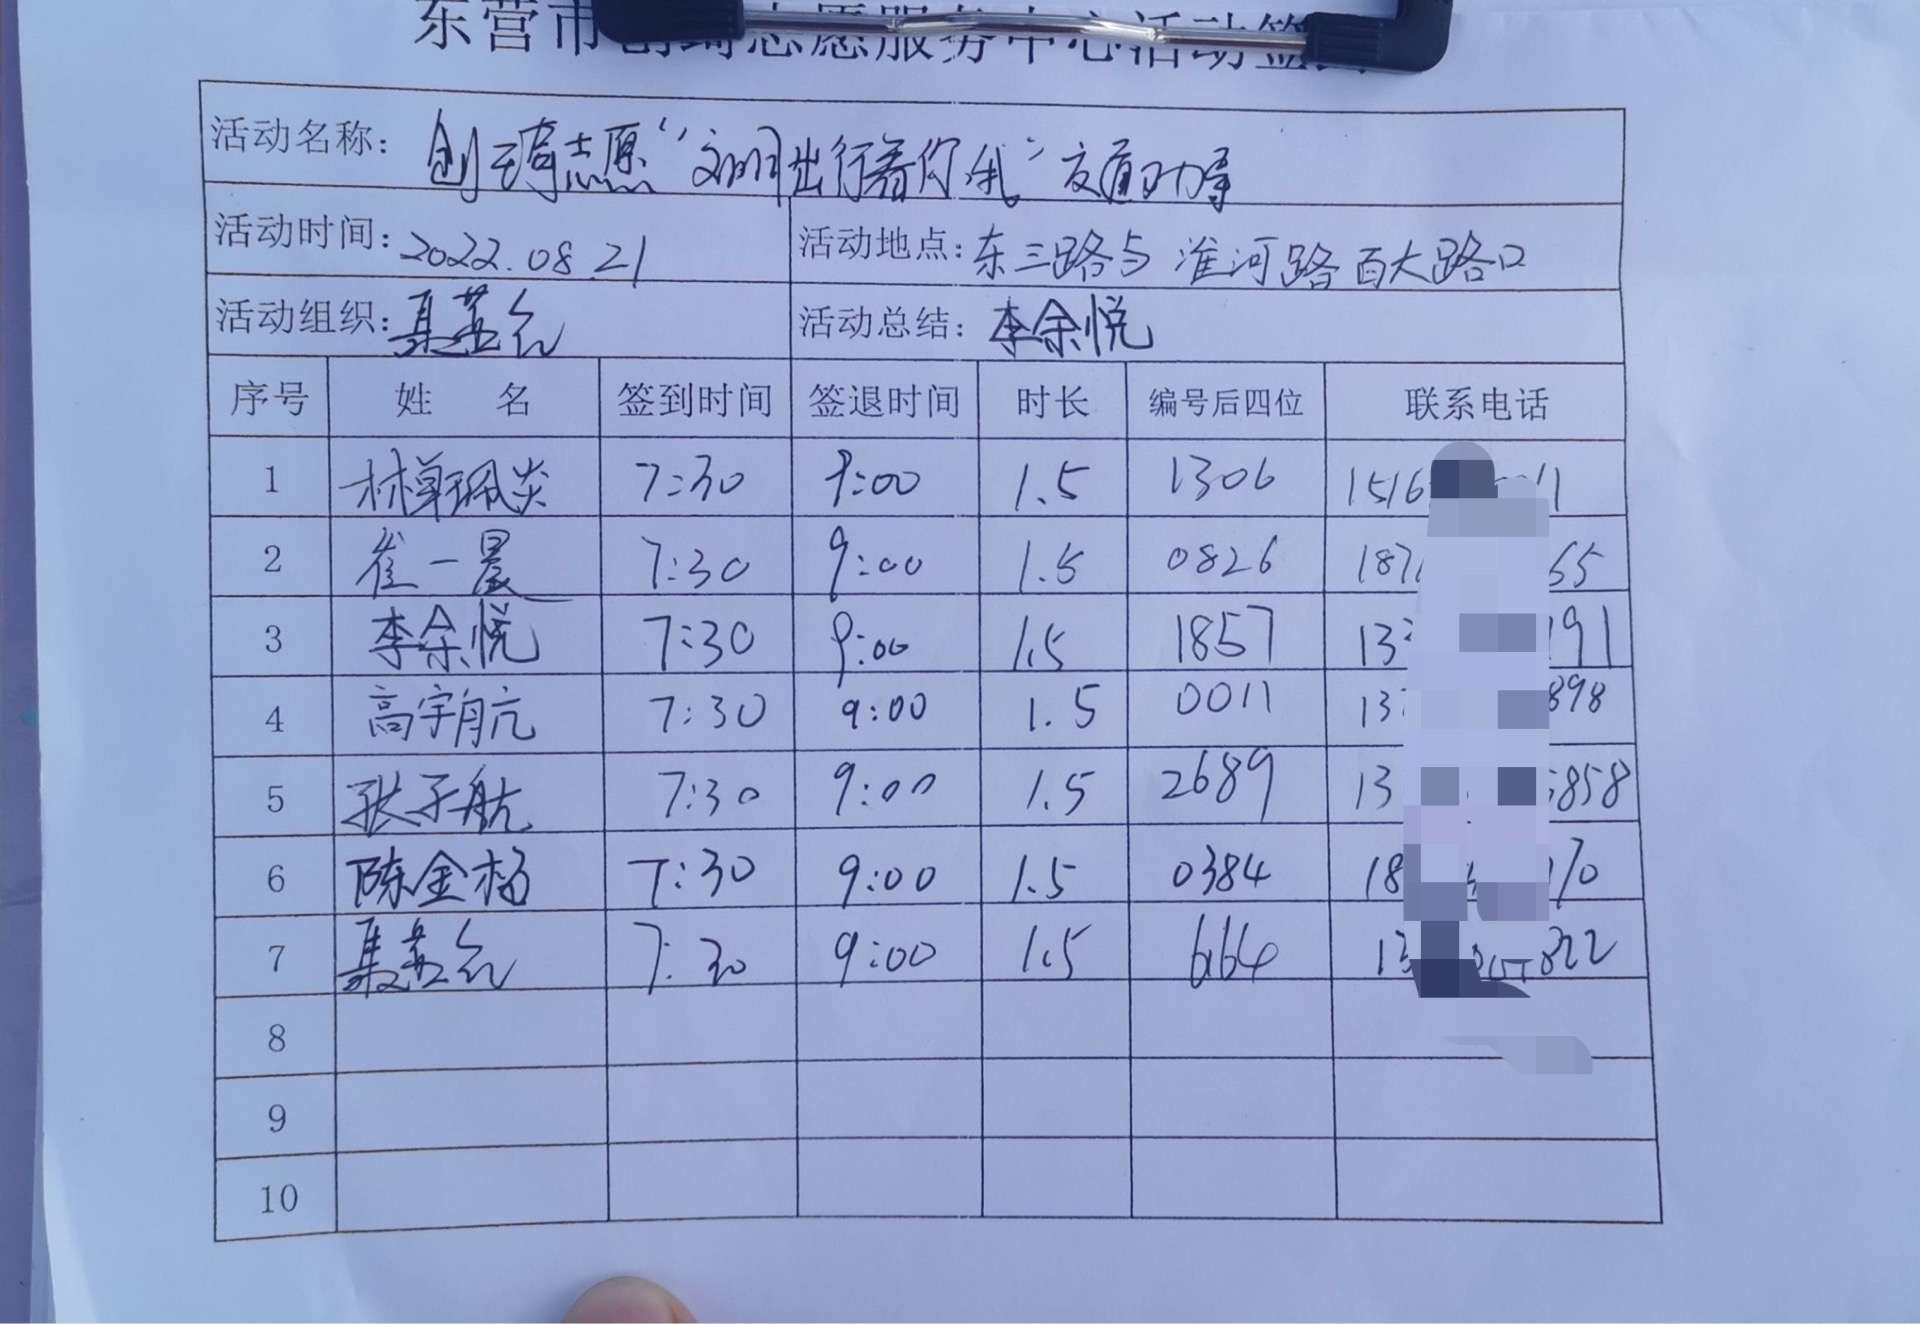 东营市创琦志愿服务中心活动签
活动名称：创琦志愿“文明出行看你我”交通劝导
活动时间：2022.08.21 活动地点：东三路与淮河路百大路口
活动组织： 活动总结：李余悦
序号 姓名 签到时间 签退时间 时长 编号后四位 联系电话
1 林单珮炎 7:30 9:00 1.5 1306 1516 11
2 崔一晨 7:30 9:00 1.5 0826 187 65
3 李余悦 7:30 9:00 1.5 1857 13 191
4 高宇航 7:30 9:00 1.5 0011 13 898
5 张子航 7:30 9:00 1.5 2689 13 5858
6 陈金杨 7:30 9:00 1.5 0384 18 70
7 7:30 9:00 1.5 6664 13 822
8
9
10